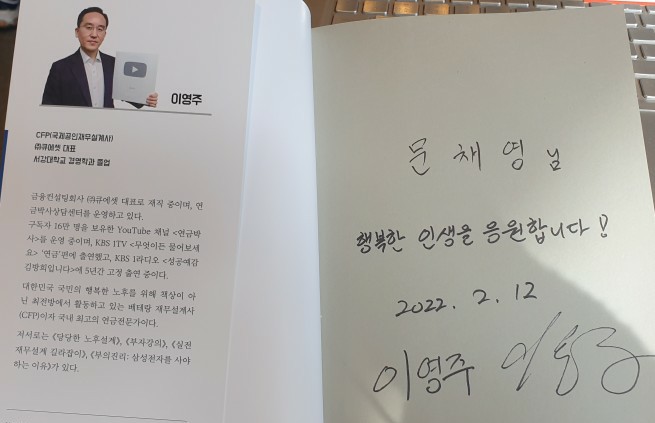 이영주
CFP(국제공인재무설계사)
㈜큐에셋 대표
서강대학교 경영학과 졸업
금융컨설팅회사 ㈜큐에셋 대표로 재직 중이며, 연
금박사상담센터를 운영하고 있다.
구독자 16만 명을 보유한 YouTube 채널 <연금박
사>를 운영 중이며, KBS 1TV <무엇이든 물어보세
요> '연금'편에 출연했고, KBS 1라디오 <성공예감
김방희입니다>에 5년간 고정 출연 중이다.
대한민국 국민의 행복한 노후를 위해 책상이 아
닌 최전방에서 활동하고 있는 베테랑 재무설계사
(CFP)이자 국내 최고의 연금전문가이다.
저서로는 《당당한 노후설계》, 《부자강의》, 《실전
재무설계 길라잡이》, 《부의진리: 삼성전자를 사야
하는 이유》가 있다.
문채영님
행복한 인생을 응원합니다!
2022. 2. 12
이영주